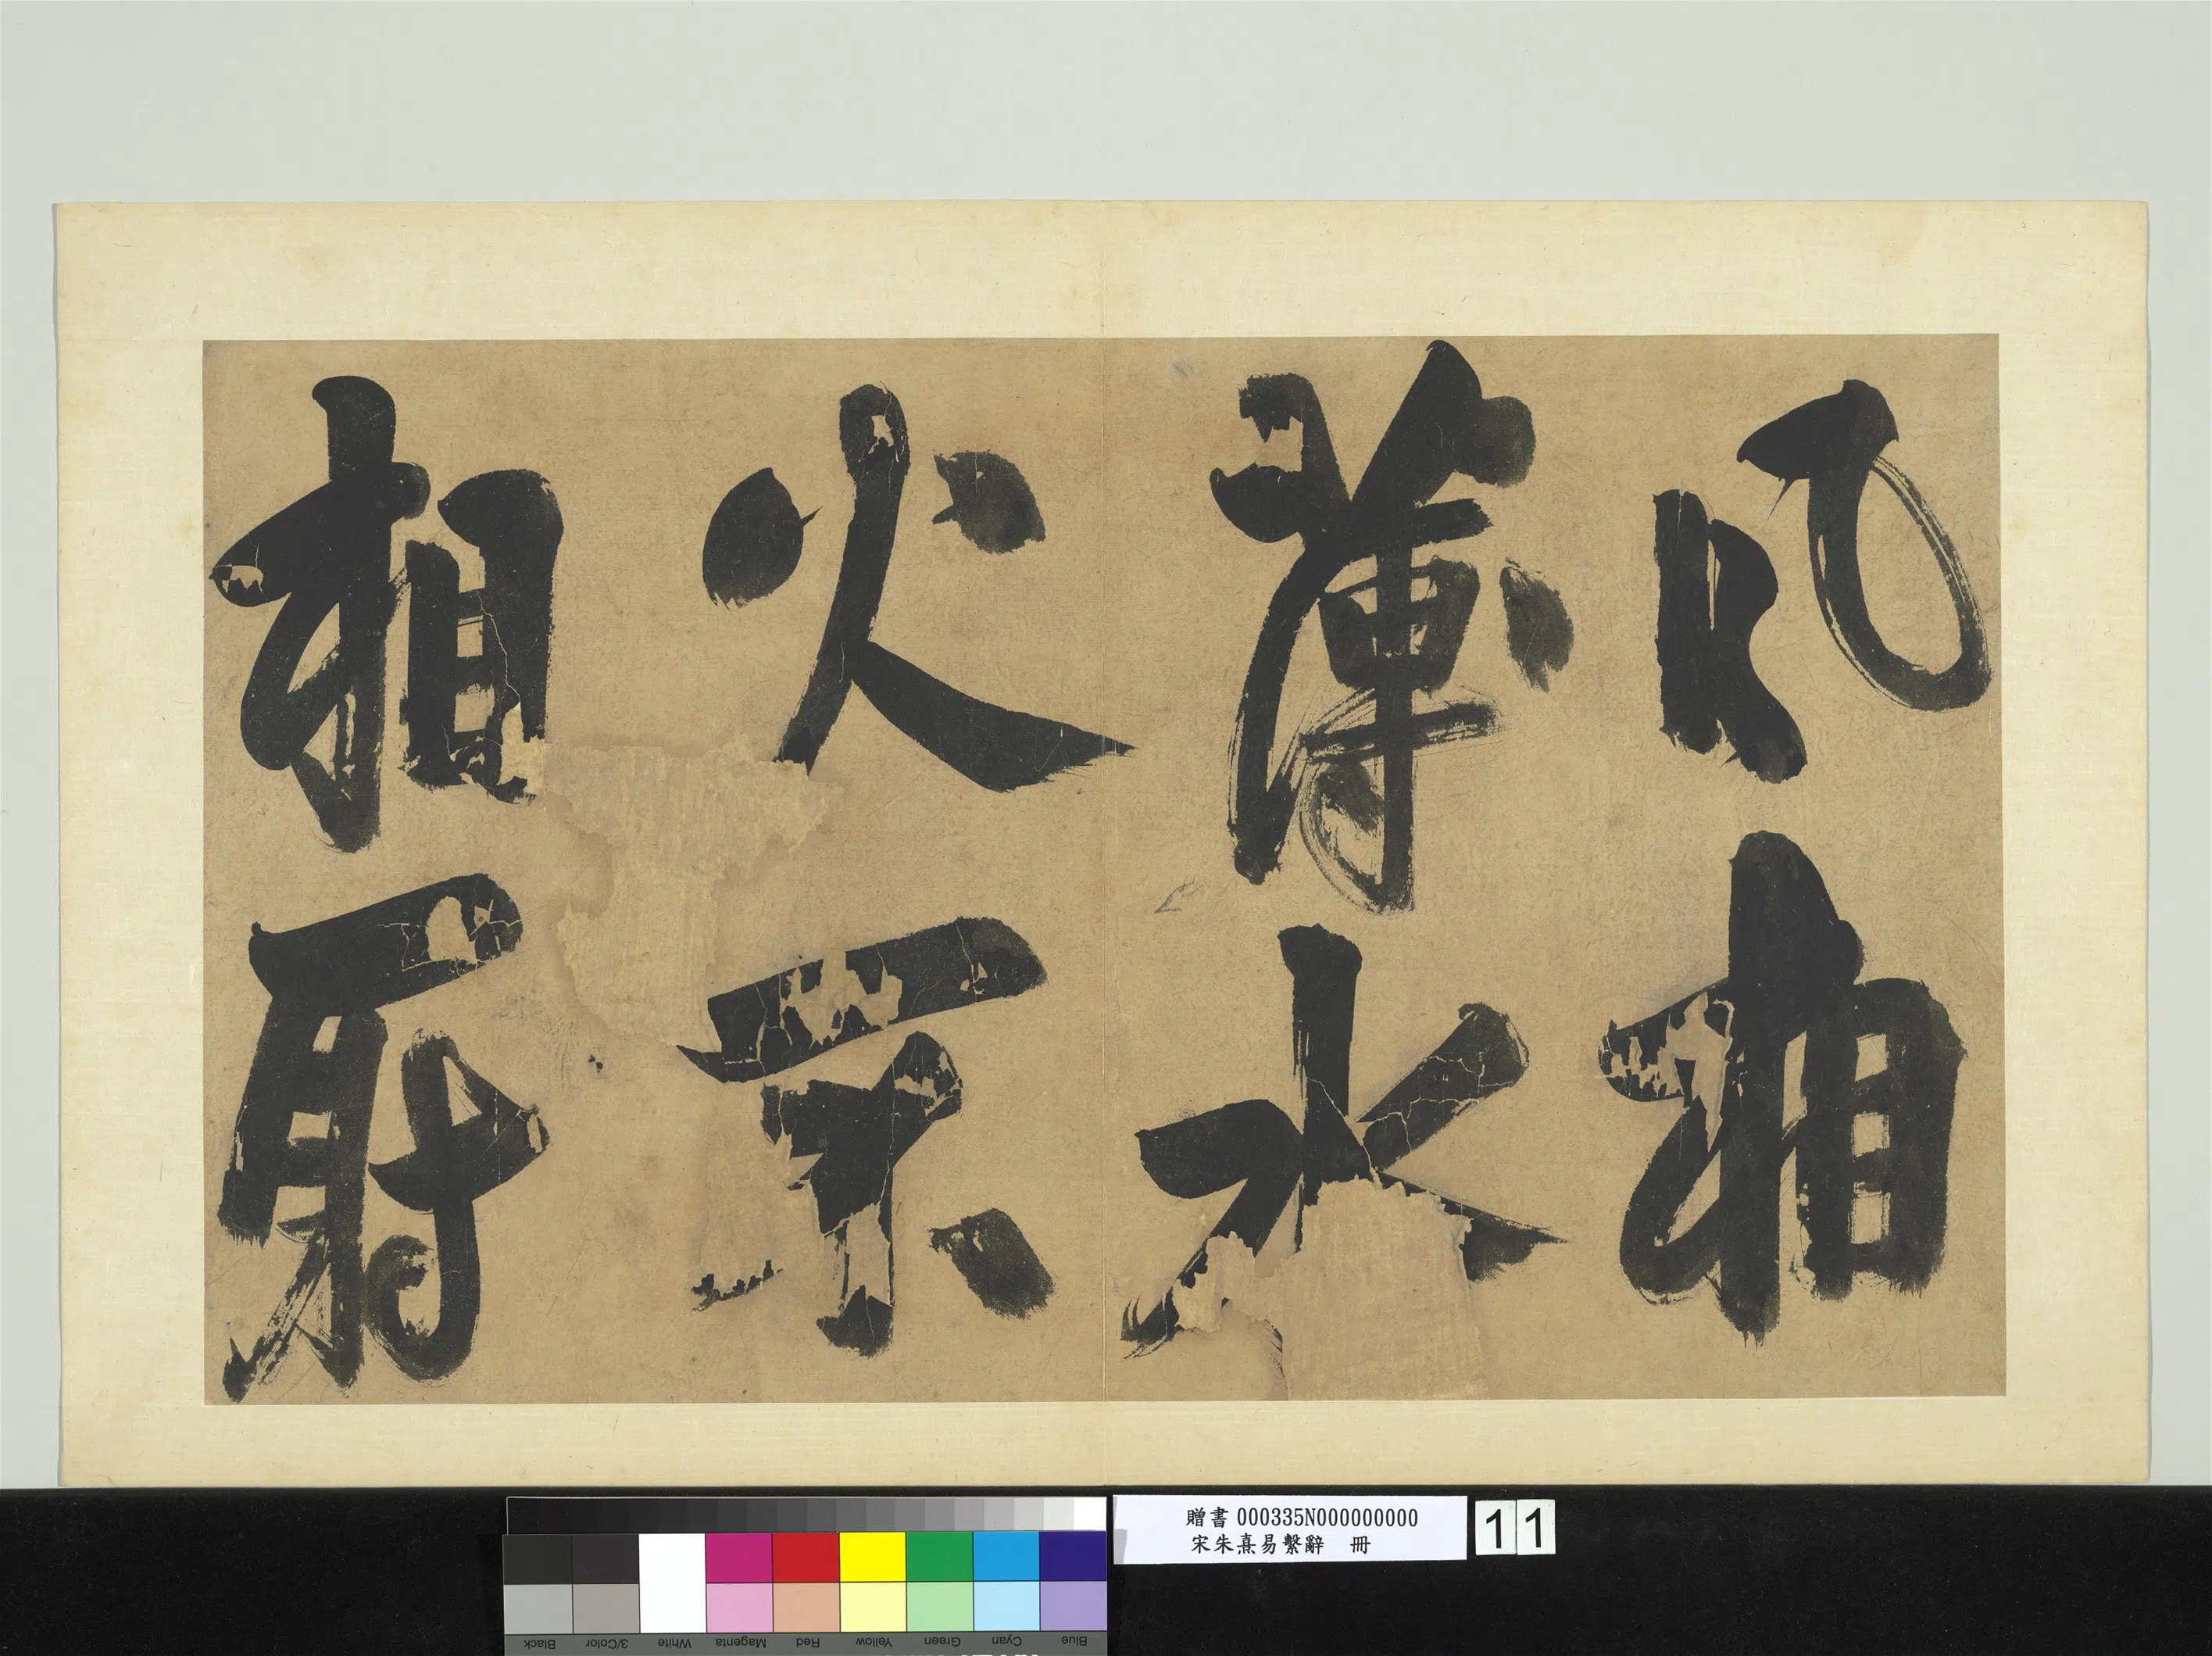 風相
薄水
火不
相射
贈書 000335N000000000
宋朱熹易繫辭 冊
11
Blue Cyan Green Yellow Red Magenta White 3/Color Black